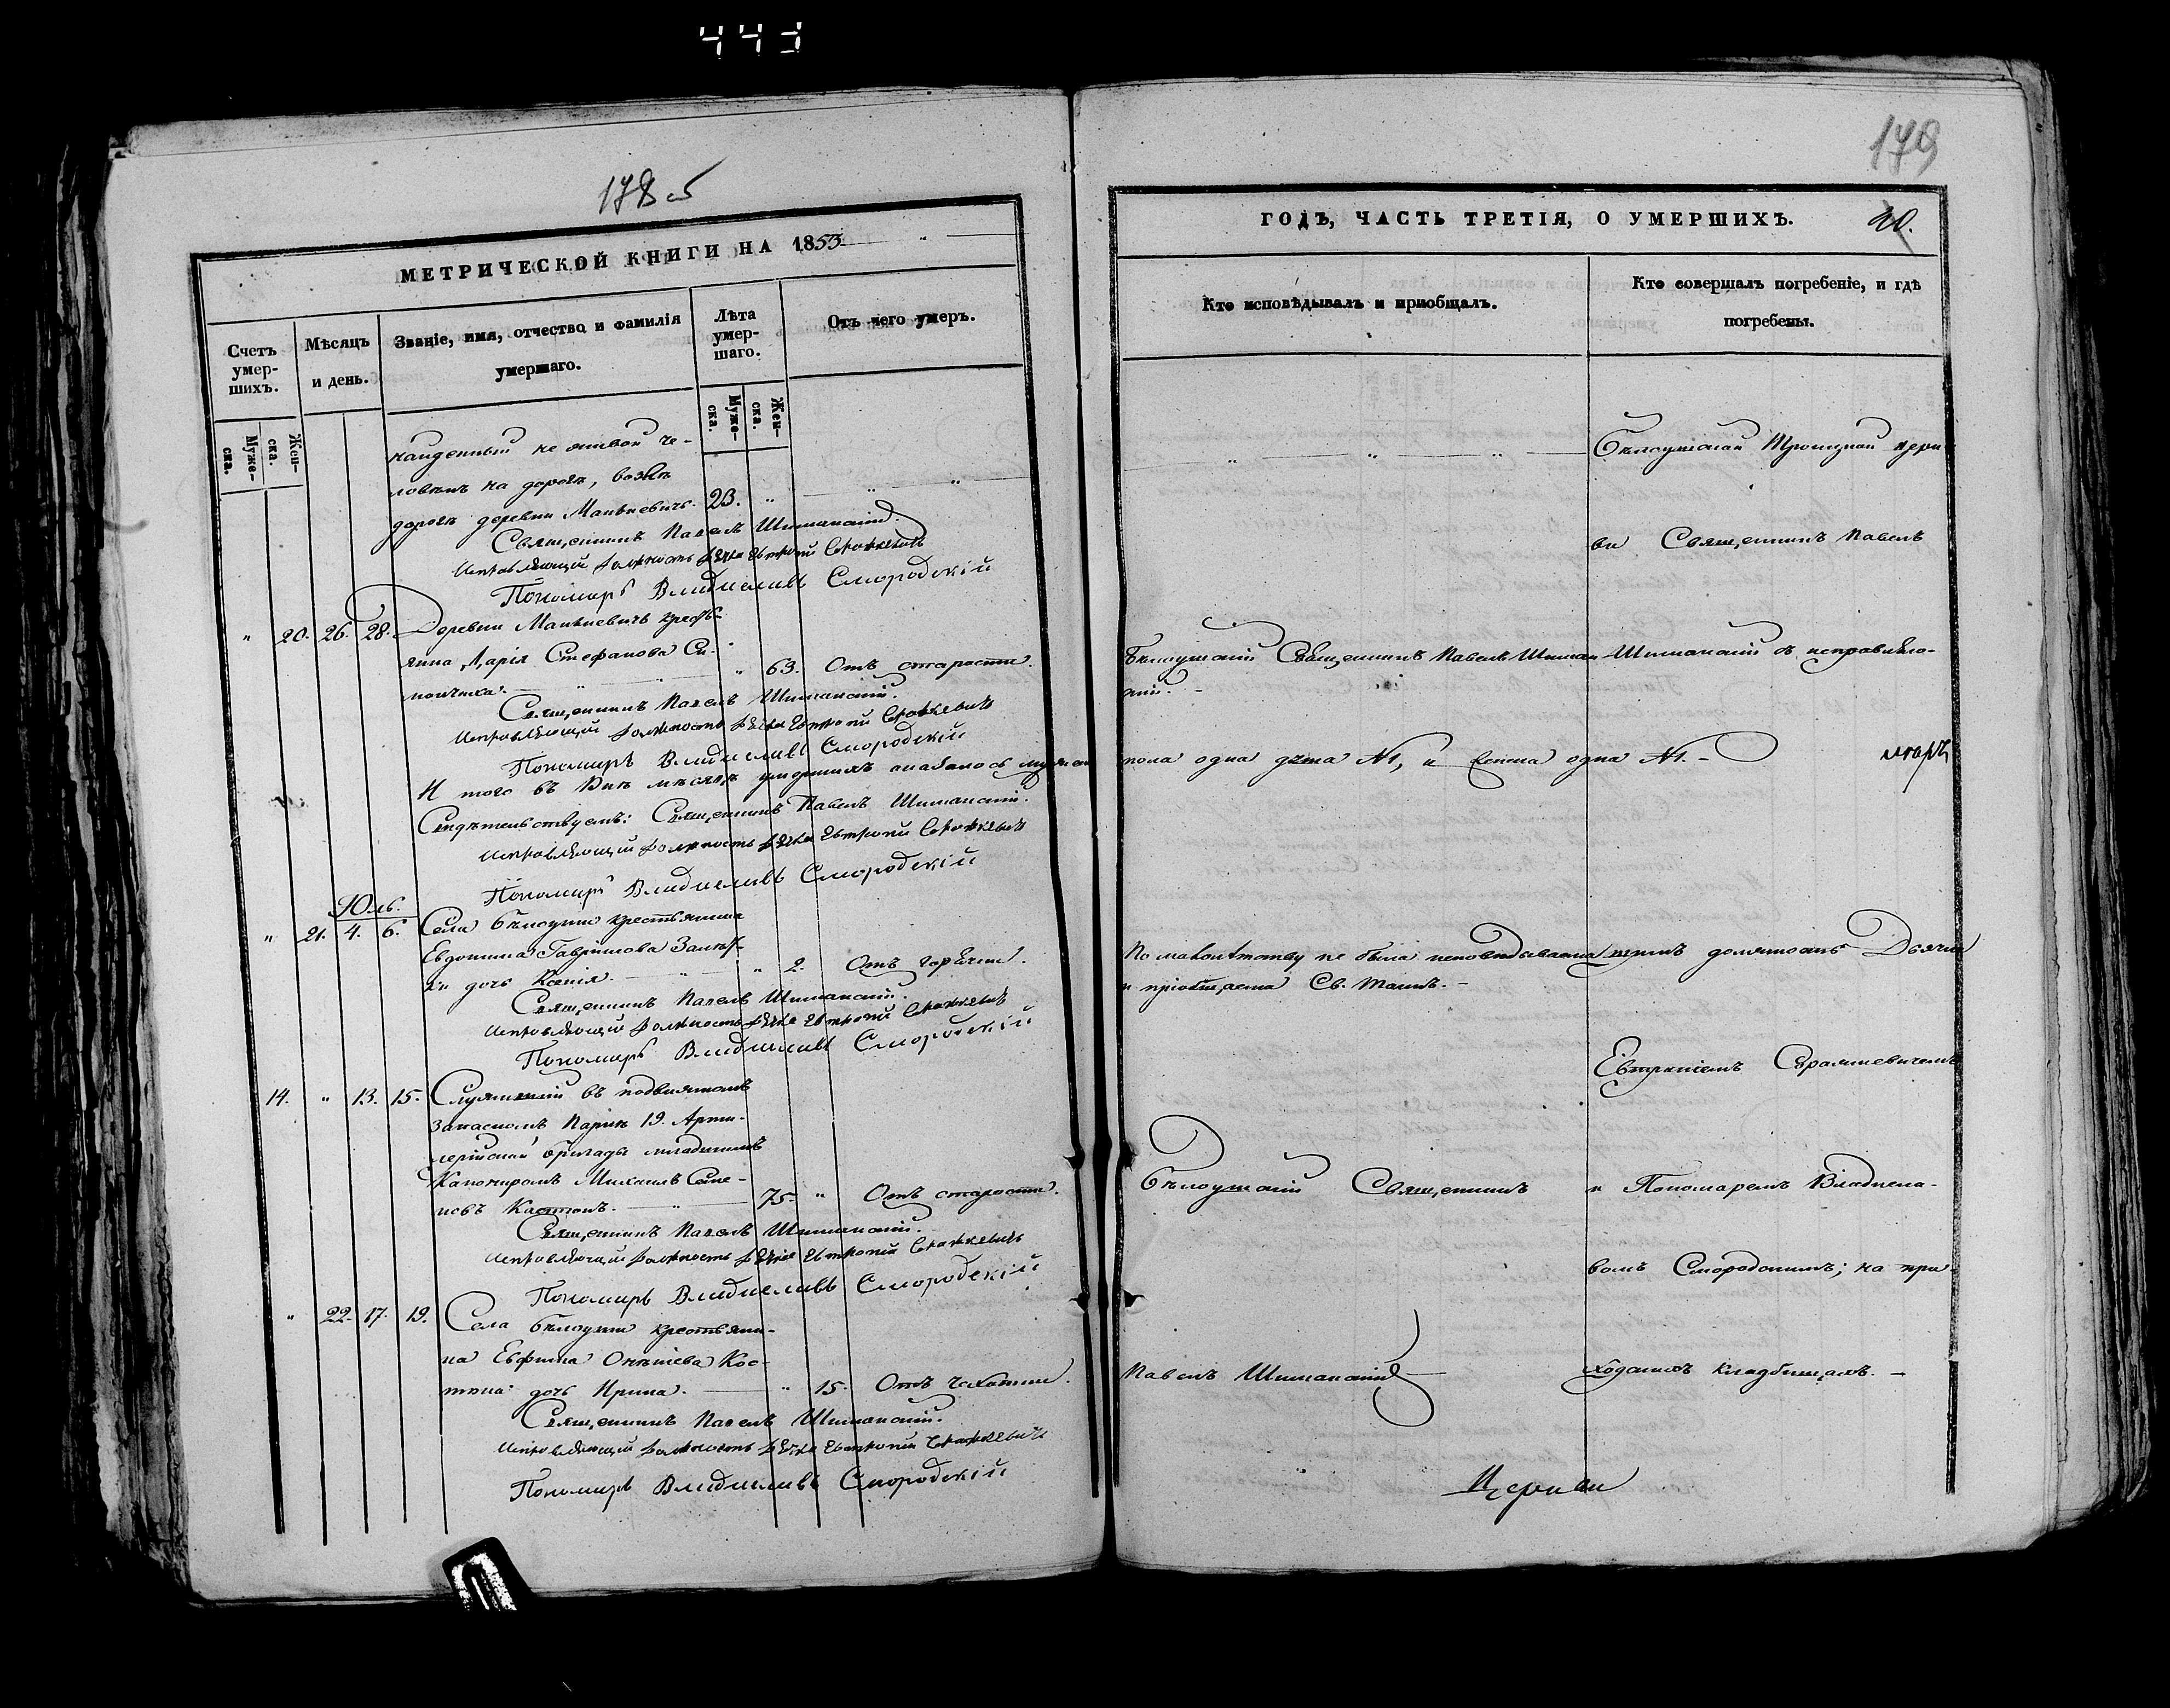 443
178 об
МЕТРИЧЕСКОЙ КНИГИ НА 1853
Счетъ умер-шихъ.
Мѣсяцъ и день.
Званіе, имя, отчество и фамилія умершаго.
Лѣта умер-шаго.
Отъ чего умеръ.
Муже-ска.
Жен-ска.
Муже-ска.
Жен-ска.
найденный не живой че-
ловѣкъ на дорогѣ, возлѣ
дороги деревни Манькевичь. 23. "
Священникъ Павелъ Шиманскій.
Исправляющій должность дьячка Евтропій
Пономарь Владиславъ Смородскій
" 20. 26. 28. Деревни Манкевичь кресть-
янка Марія Стефанова Си-
" 63. Отъ старости.
Священникъ Павелъ Шиманскій.
Исправляющій должность дьячка Евтропій
Пономарь Владиславъ Смородскій
И того въ Іюнѣ мѣсяцѣ умершихъ оказалось мужеска
Свидѣтельствуемъ: Священникъ Павелъ Шиманскій.
Исправляющій должность дьячка Евтропій
Пономарь Владиславъ Смородскій
Юль.
" 21. 4. 6. Села Бѣлоуши крестьянина
Евдокима Гаврилова
дочь Ксенія. " 2. Отъ горячки.
Священникъ Павелъ Шиманскій.
Исправляющій должность дьячка Евтропій
Пономарь Владиславъ Смородскій
14. " 13. 15. Служившій въ подвижномъ
Запасномъ Паркѣ 19. Арти-
лерійской бригады младшимъ
Канониромъ Михаилъ Семе-
новъ 75. " Отъ старости.
Священникъ Павелъ Шиманскій.
Исправляющій должность дьячка Евтропій
Пономарь Владиславъ Смородскій
" 22. 17. 19. Села Бѣлоуши крестьяни-
на Евфима Кос-
дочь Ирина. " 15. Отъ чахотки.
Священникъ Павелъ Шиманскій.
Исправляющій должность дьячка Евтропій
Пономарь Владиславъ Смородскій
179
ГОДЪ, ЧАСТЬ ТРЕТІЯ, О УМЕРШИХЪ.
20.
Кто исповѣдывалъ и пріобщалъ.
Кто совершалъ погребеніе, и гдѣ погребены.
" " " Бѣлоушской Троицкой церк-
ви Священникъ Павелъ
Бѣлоушскій Священникъ Павелъ Шиман- Шиманскій съ исправляю-
скій.
пола одна душа №1, и женска одна №1.
По малолѣтству не была исповѣдывана щимъ должность Дьячка
и пріобщаема Св. Таинъ.
Евтропіемъ
Бѣлоушскій Священникъ и Пономаремъ Владисла-
вомъ Смородскимъ; на при-
Павелъ Шиманскій ходскихъ кладбищахъ.
Церкви